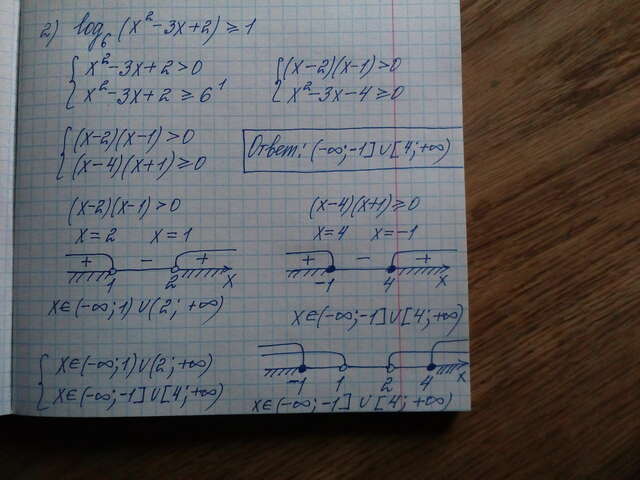 2) log₆(x²-3x+2)≥1
{ x²-3x+2>0
x²-3x+2≥6¹
{ (x-2)(x-1)>0
x²-3x-4≥0
{ (x-2)(x-1)>0
(x-4)(x+1)≥0
Ответ: (-∞;-1]∪[4;+∞)
(x-2)(x-1)>0
x=2 x=1
+ - +
1 2 x
x∈(-∞;1)∪(2;+∞)
(x-4)(x+1)≥0
x=4 x=-1
+ - +
-1 4 x
x∈(-∞;-1]∪[4;+∞)
{ x∈(-∞;1)∪(2;+∞)
x∈(-∞;-1]∪[4;+∞)
-1 1 2 4 x
x∈(-∞;-1]∪[4;+∞)